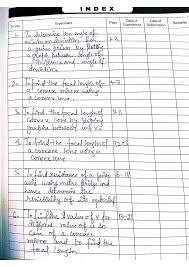 INDEX
S.No. Experiment Page Date of Experiment Date of Submission Remarks
1. To determine the angle of
minimum deviation for
a given prism by plotting
a graph between angle of
incidence and angle of
deviation.
2. To find the focal length of
a convex mirror using
a convex lens.
3. To find the focal length of
convex lens by plotting
graphs between
4. To find the focal length of
a concave lens using a
convex lens
5. To find resistance of a given
wire using metre bridge and
hence determine the
resistivity of its material
6. To find the value of v for
different values of u in
case of a concave
mirror and to find the
focal length.